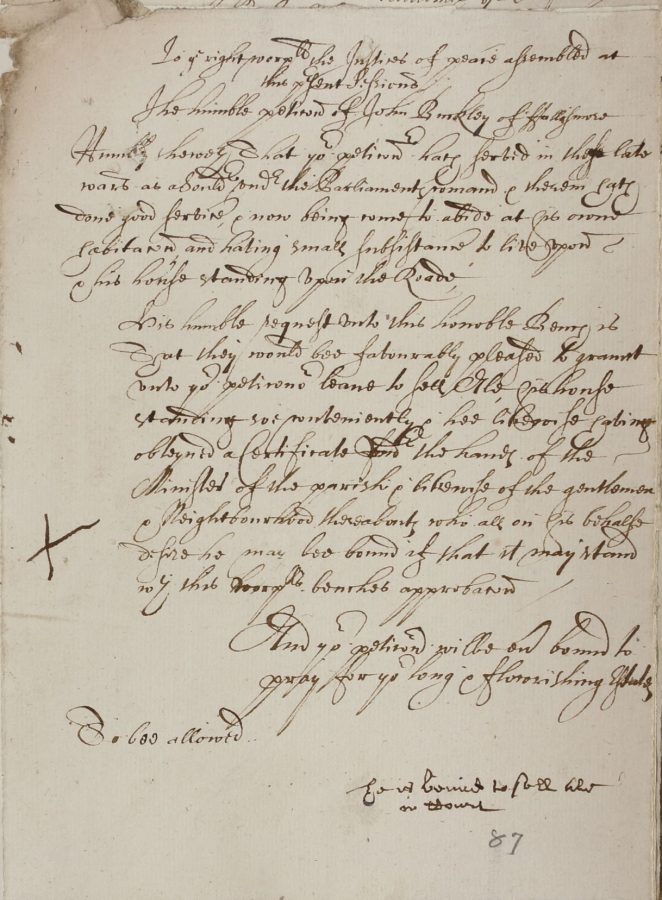 To ye right worpll the Justices of peace assembled at
this psent Sessions
The humble peticon of John Buckley of
Humbly sheweth That yor peticonr hath served in these late
warrs as a Souldr undr the Parliaments comand & therein hath
done good service, & now being come to abide at his owne
habitacon and having small subsistance to live upon
& his house standing upon the Roade,
His humble request unto this honoble Bench is
That they would bee favourably pleased to graunt
unto yor peticonr leave to sell Ale, his house
standing soe conveniently & hee likewise having
obteyned a Certificate undr the hands of the
Minister of the parish & likewise of the gentlemen
& Neighbourhood thereabouts who all on his behalfe
desire he may bee bound if that it may stand
wth this worpll benches approbacon
And yor peticonr wilbe evr bound to
pray for yor long & florrishing Estate
To bee allowed.
he is bound to sell Ale
in Court
87